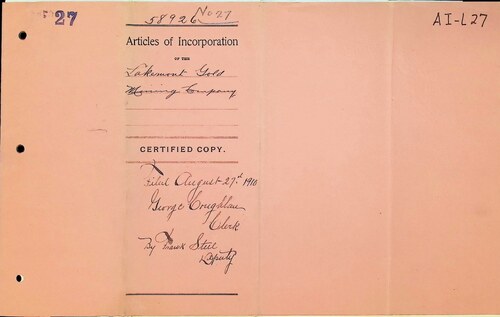 27
58926 No 27
AI-L27
Articles of Incorporation
OF THE
Lakemont Gold
Mining Company
CERTIFIED COPY.
Filed August 27th 1910
George Coughlan
Clerk
By Frank Steel
Deputy